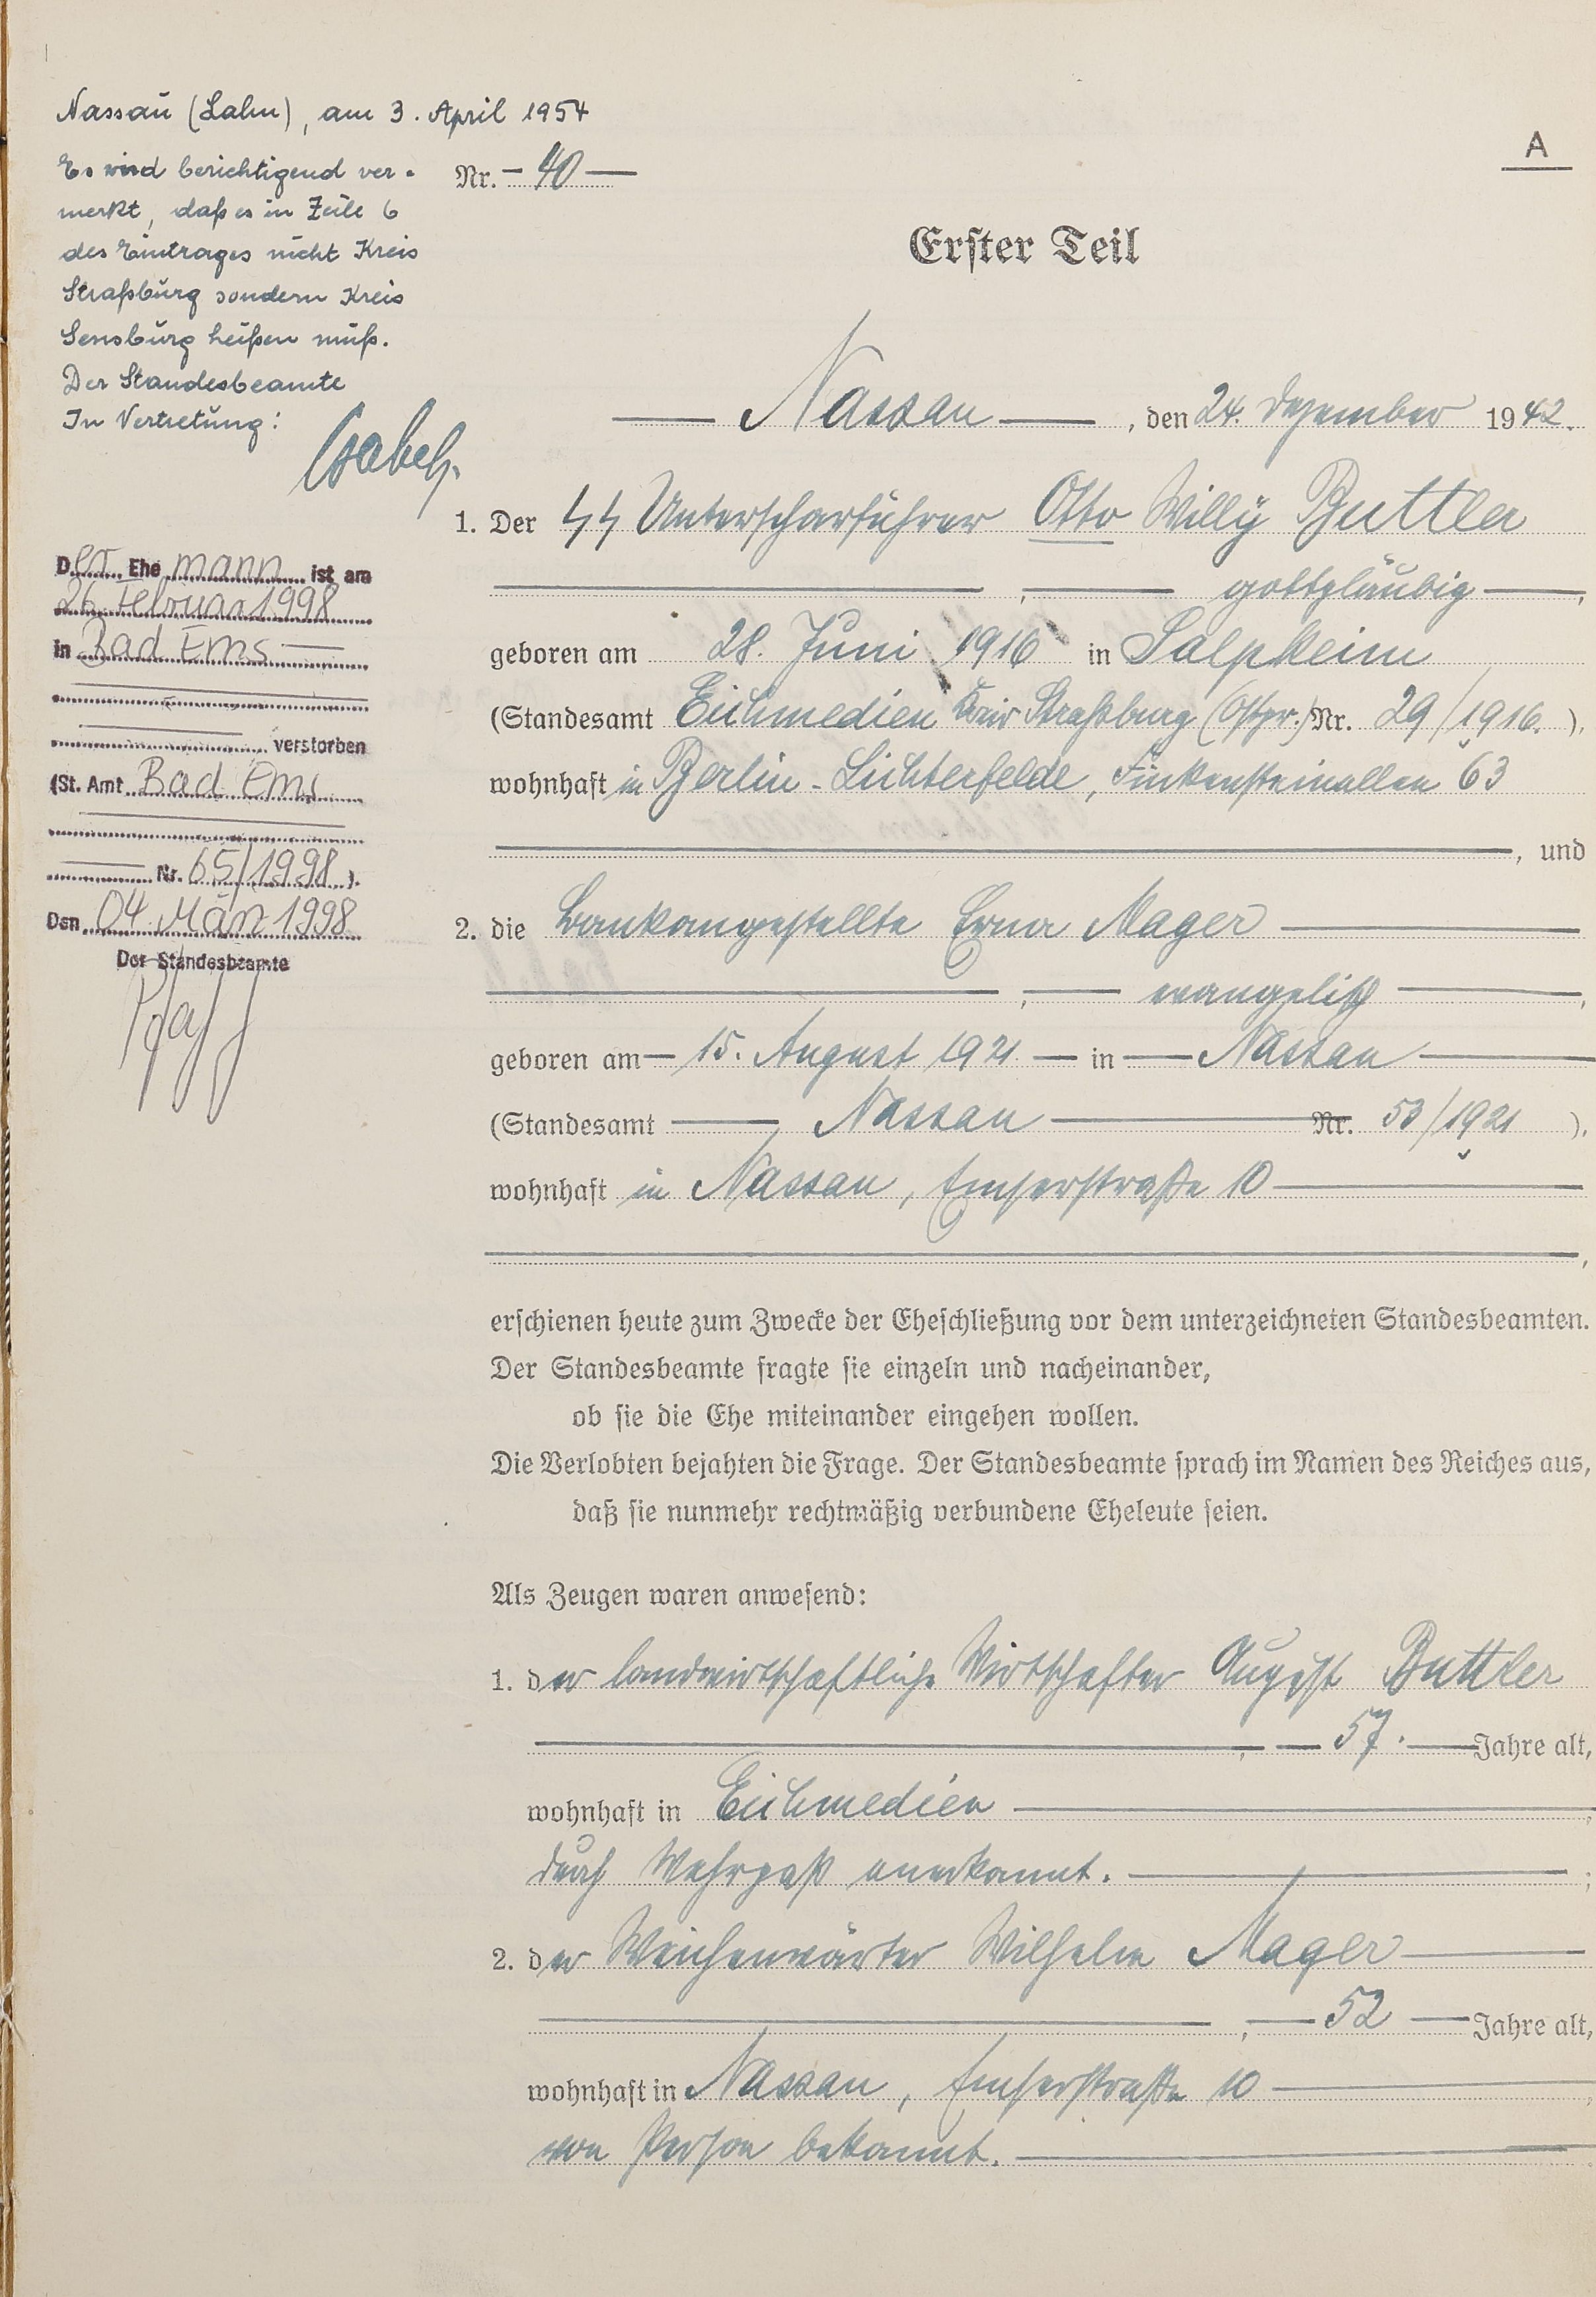 Nassau (Lahn), am 3. April 1954
Es wird berichtigend ver-
merkt, daß es in Zeile 6
des Eintrages nicht Kreis
Straßburg sondern Kreis
Sensburg heißen muß.
Der Standesbeamte
In Vertretung:
Der Ehemann ist am
26. Februar 1998
in Bad Ems
verstorben
(St. Amt Bad Ems
Nr. 65/1998 ).
Den 04. März 1998
Der Standesbeamte
A
Nr. 40
Erster Teil
Nassau, den 24. Dezember 1942.
1. Der SS Unterscharführer Otto Willy Buttler
, gottgläubig,
geboren am 28. Juni 1916 in Salpkeim
(Standesamt Eichmedien Kreis Straßburg (Ostpr.) Nr. 29/1916. ),
wohnhaft in Berlin-Lichterfelde, Finkensteinallee 63
, und
2. die Bankangestellte Erna Mager
, evangelisch,
geboren am 15. August 1921 in Nassau
(Standesamt Nassau Nr. 53/1921 ),
wohnhaft in Nassau, Emserstraße 10
,
erschienen heute zum Zwecke der Eheschließung vor dem unterzeichneten Standesbeamten.
Der Standesbeamte fragte sie einzeln und nacheinander,
ob sie die Ehe miteinander eingehen wollen.
Die Verlobten bejahten die Frage. Der Standesbeamte sprach im Namen des Reiches aus,
daß sie nunmehr rechtmäßig verbundene Eheleute seien.
Als Zeugen waren anwesend:
1. der landwirtschaftliche Wirtschafter August Buttler
, 57 Jahre alt,
wohnhaft in Eichmedien
durch Wehrpaß anerkannt. ;
2. der Weichenwärter Wilhelm Mager
, 52 Jahre alt,
wohnhaft in Nassau, Emserstraße 10
von Person bekannt.